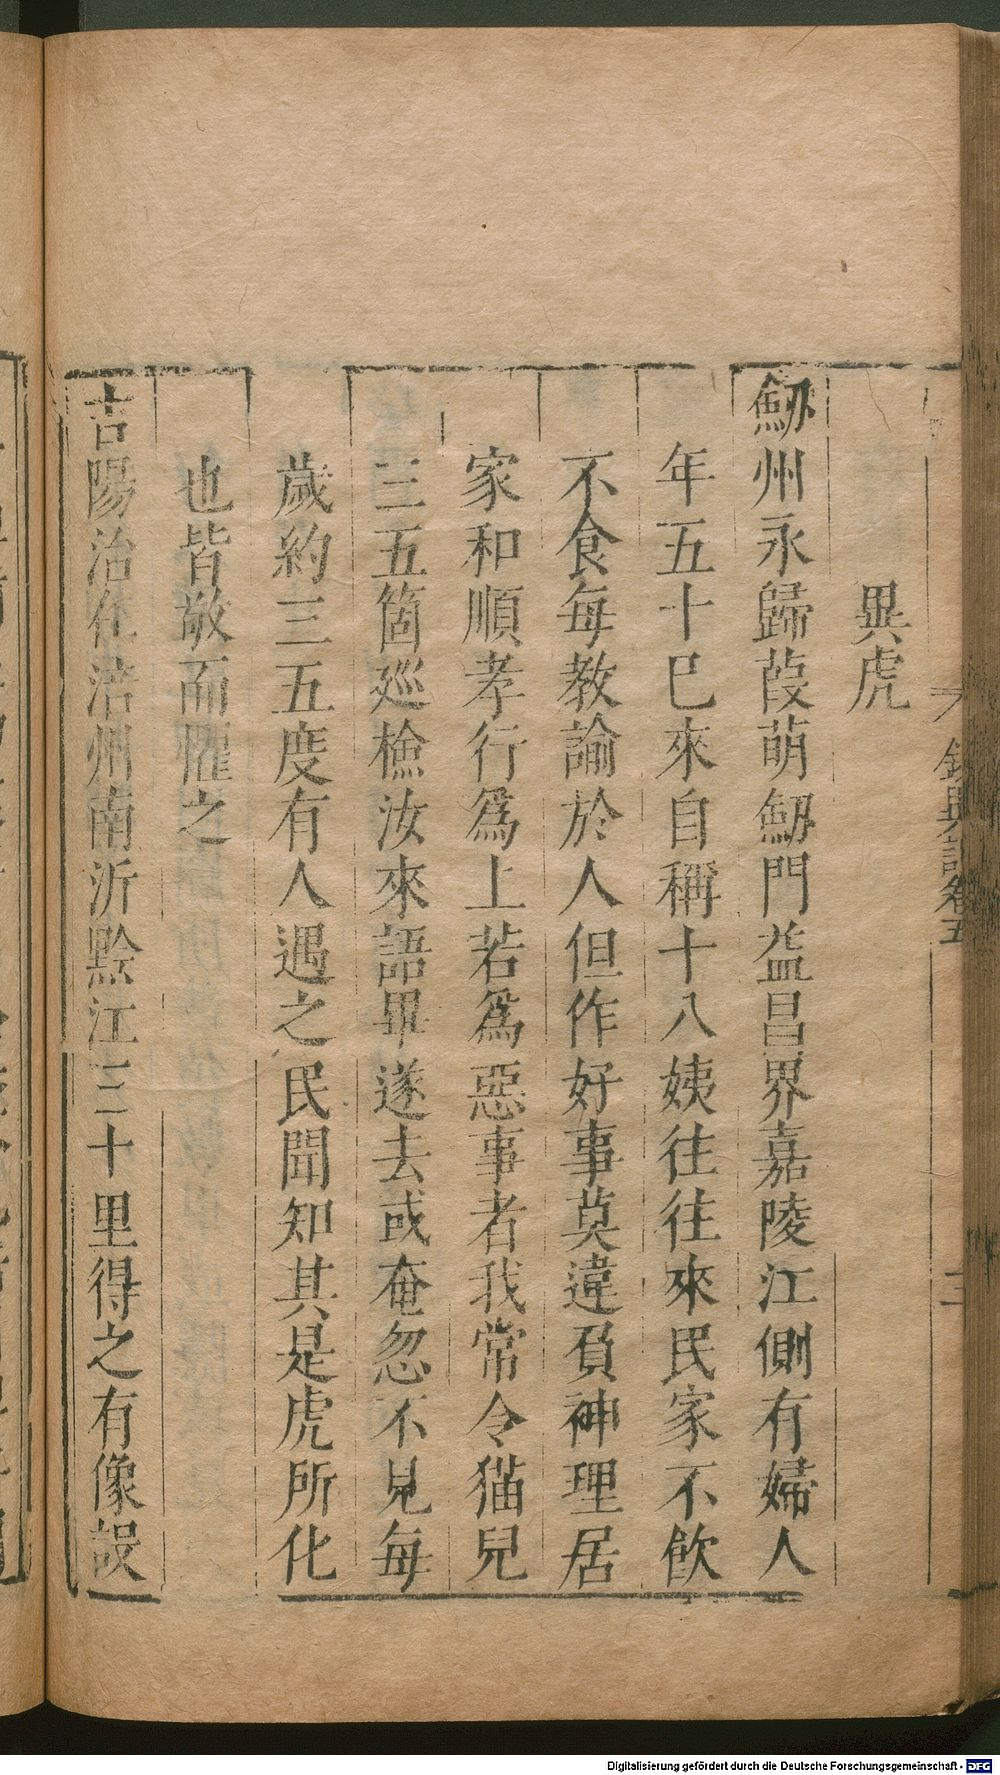 異虎
劒州永歸葭萌劒門益昌界嘉陵江側有婦人
年五十巳來自稱十八姨往往來民家不飮
不食每教諭於人但作好事莫違負神理居
家和順孝行爲上若爲惡事者我常令猫兒
三五箇廵檢汝來語畢遂去或奄忽不見每
歲約三五度有人遇之民聞知其是虎所化
也皆敬而懼之
吉陽治在涪州南沂黔江三十里得之有像設
錄異記卷五
三
Digitalisierung gefördert durch die Deutsche Forschungsgemeinschaft - DFG